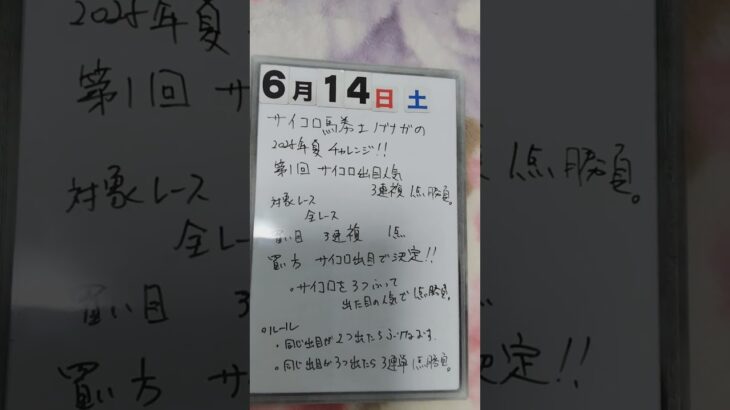 6月14日土
サイコロ馬券士ノブナガの
2025年夏 チャレンジ!!
第1回 サイコロ出目人気
3連複 1点勝負。
対象レース
全レース
買い目 3連複 1点
買い方 サイコロ出目で決定!!
・サイコロを3つふって
出た目の人気で1点勝負。
○ルール
・同じ出目が2つ出たらふりなおす。
・同じ出目が3つ出たら3連単1点勝負。